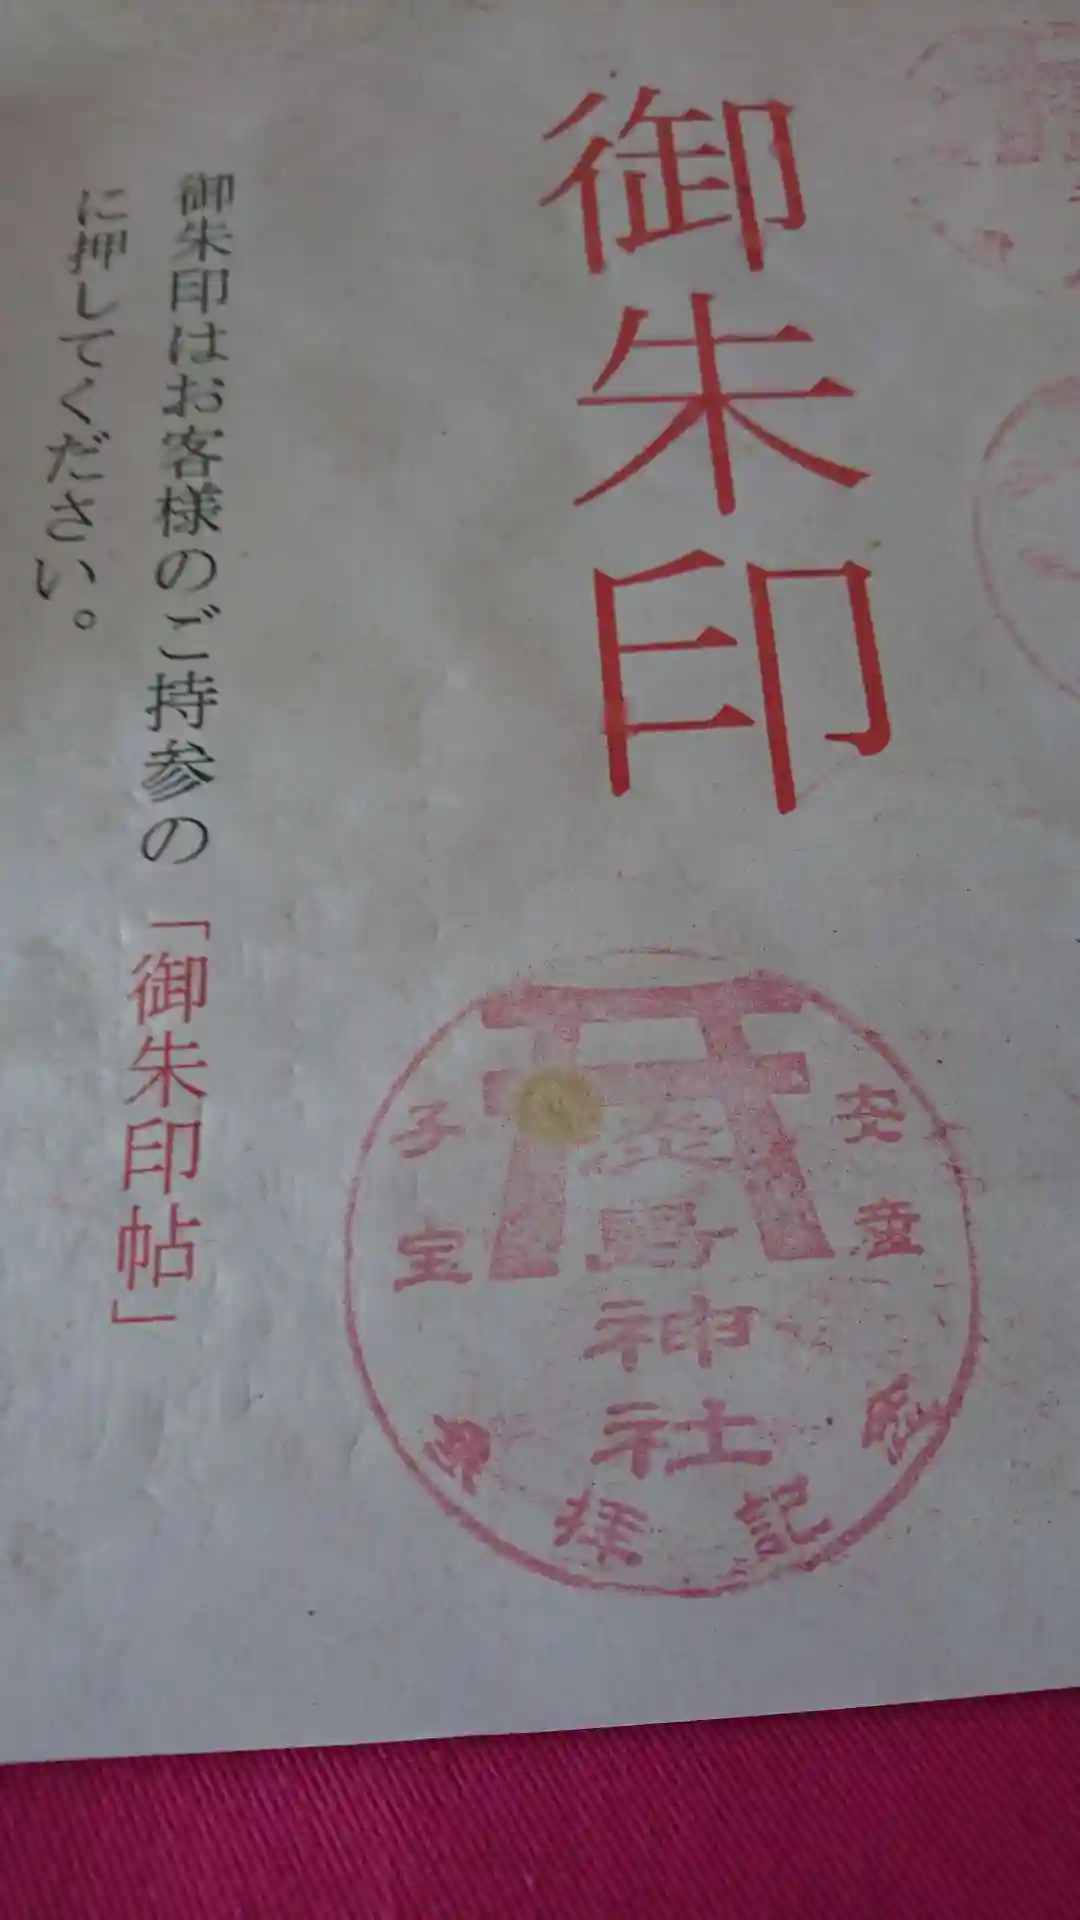 御朱印
安産
淡島神社
子宝
参拝記念
御朱印はお客様のご持参の「御朱印帖」
に押してください。